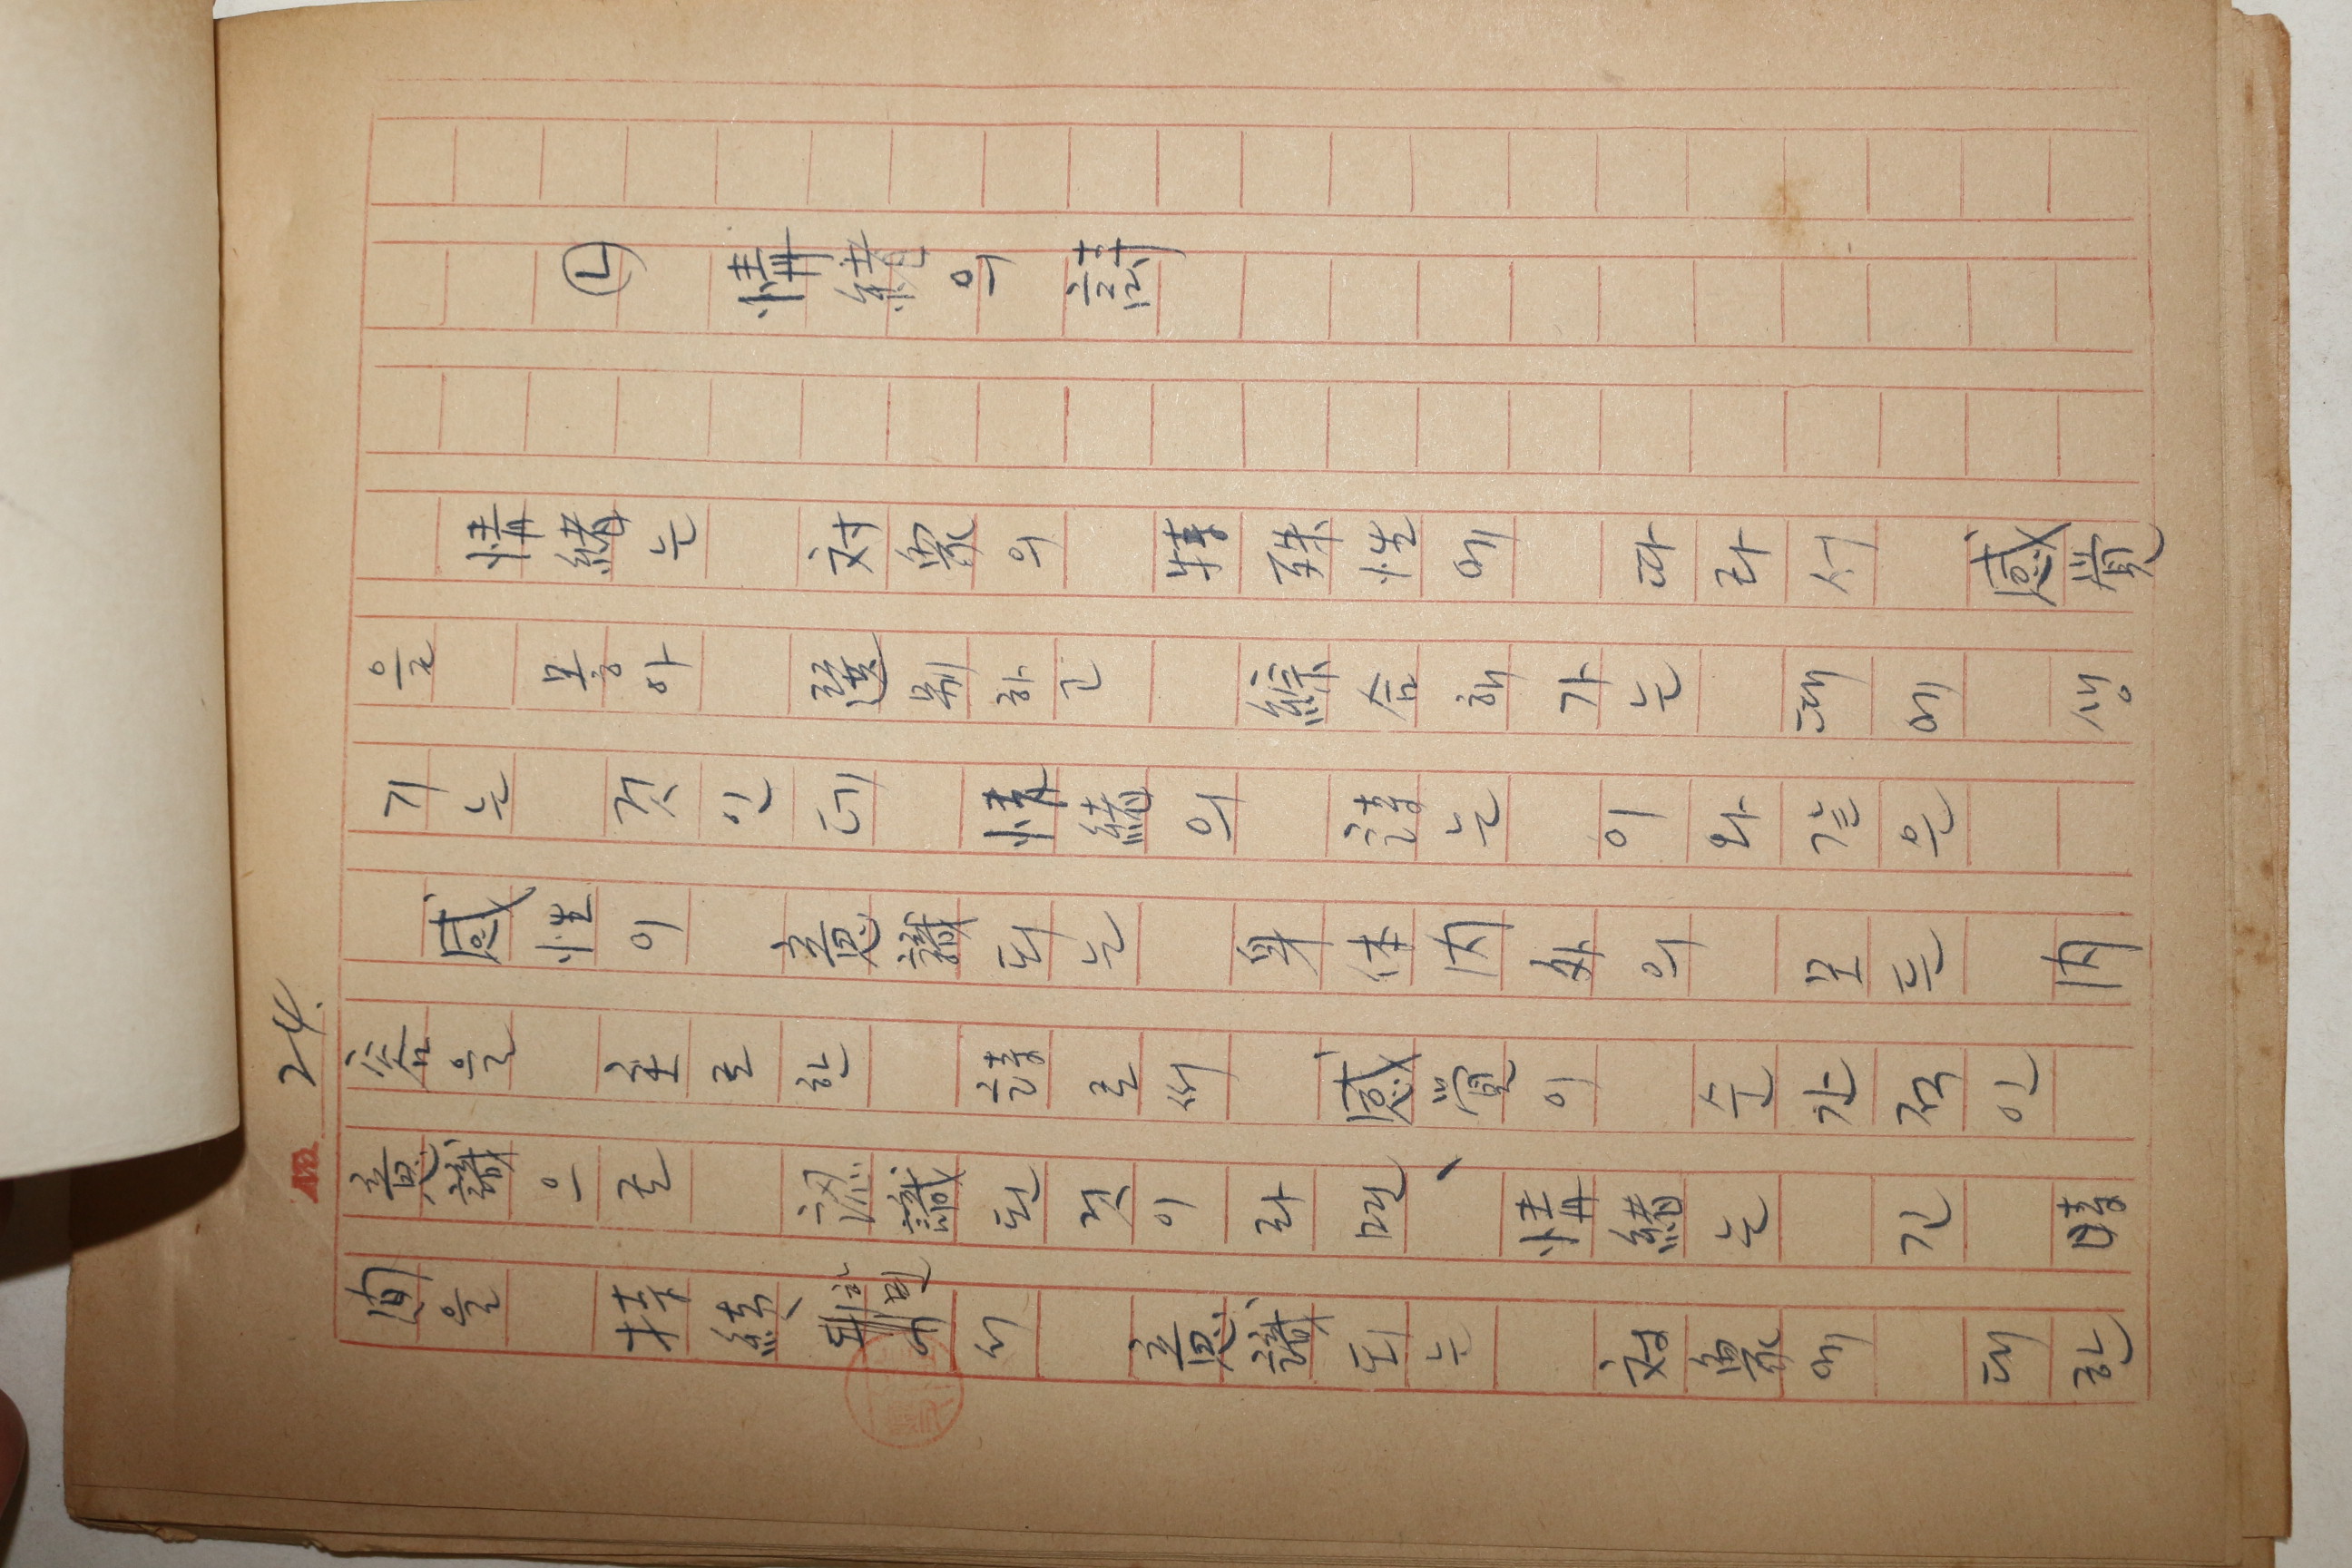 No. 24.
㉡ 情緖의 詩
情緖는 対象의 特殊性에 따라서 感覚
을 몽아 選別하고 綜合해가는 때에 생
기는 것인데 情緖의 詩는 이와 같은
感性이 意識되는 身体内外의 모든 内
容을 主로 한 詩로써 感覚이 순간적인
意識으로 認識된 것이라면, 情緖는 긴 時
间을 持續하면서 意識되는 対象에 대한